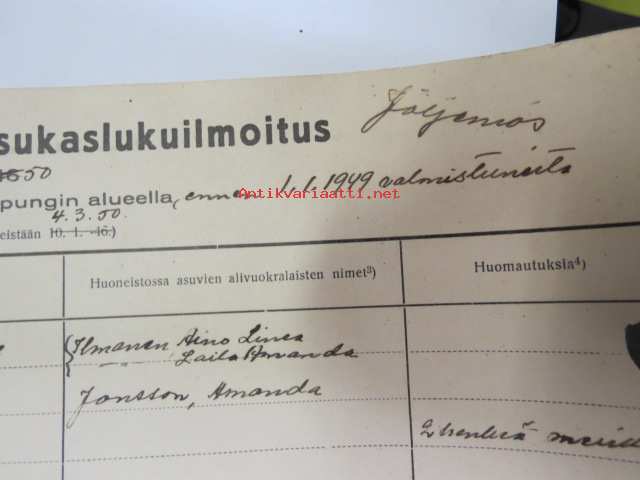 sukaslukuilmoitus Jäljennös
50
pungin alueella, ennen 1.1.1949 valmistuneita
Antikvariaatti.net
4.3.50.
eistään 10. 1. -46.)
Huoneistossa asuvien alivuokralaisten nimet³)
Huomautuksia⁴)
Ilmanen Aino Linea
Laila Amanda
Jansson, Amanda
2 henkeä